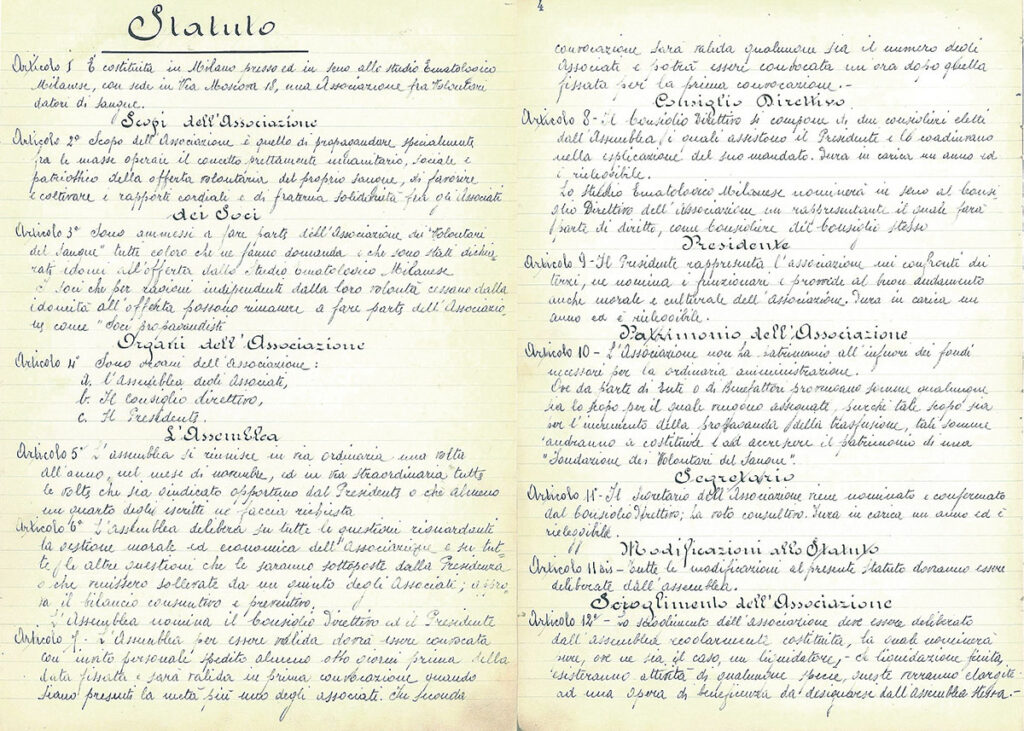 Statuto
Articolo 1 È costituita in Milano presso ed in seno allo studio Ematologico
Milanese, con sede in Via Moscova 18, una Associazione fra Volontari
datori di sangue.
Scopi dell'Associazione
Articolo 2° Scopo dell'Associazione è quello di propagandare specialmente
fra le masse operaie il concetto prettamente umanitario, sociale e
patriottico della offerta volontaria del proprio sangue, di favorire
e coltivare i rapporti cordiali e di fraterna solidarietà fra gli Associati
dei Soci
Articolo 3° Sono ammessi a fare parte dell'Associazione dei "Volontari
del Sangue" tutti coloro che ne fanno domanda e che sono stati dichia-
rati idonei all'offerta dallo Studio Ematologico Milanese
I Soci che per ragioni indipendenti dalla loro volontà cessano dalla
idoneità all'offerta possono rimanere a fare parte dell'Associazio-
ne come "Soci propagandisti
Organi dell'Associazione
Articolo 4° Sono organi dell'Associazione:
a. l'Assemblea degli Associati,
b. Il Consiglio direttivo,
c. Il Presidente.
L'Assemblea
Articolo 5° L'assemblea si riunisce in via ordinaria una volta
all'anno, nel mese di novembre, ed in via straordinaria tutte
le volte che sia giudicato opportuno dal Presidente o che almeno
un quarto degli iscritti ne faccia richiesta
Articolo 6° L'Assemblea delibera su tutte le questioni riguardanti
la gestione morale ed economica dell'Associazione e su tut-
te le altre questioni che le saranno sottoposte dalla Presidenza
o che venissero sollevate da un quinto degli Associati; appro-
va il bilancio consuntivo e preventivo.
L'Assemblea nomina il Consiglio Direttivo ed il Presidente
Articolo 7. L'Assemblea per essere valida dovrà essere convocata
con invito personale spedito almeno otto giorni prima della
data fissata e sarà valida in prima convocazione quando
siano presenti la metà più uno degli associati. In seconda
4
convocazione sarà valida qualunque sia il numero degli
Associati e potrà essere convocata un'ora dopo quella
fissata per la prima convocazione.-
Consiglio Direttivo
Articolo 8- il Consiglio Direttivo si compone di due consiglieri eletti
dall'Assemblea, i quali assistono il Presidente e lo coadiuvano
nella esplicazione del suo mandato. Dura in carica un anno ed
è rieleggibile.
Lo studio Ematologico Milanese nominerà in seno al Consi-
glio Direttivo dell'Associazione un rappresentante il quale farà
parte di diritto, come Consigliere del Consiglio stesso
Presidente
Articolo 9- Il Presidente rappresenta l'associazione nei confronti dei
terzi, ne nomina i funzionari e provvede al buon andamento
anche morale e culturale dell'Associazione. Dura in carica un
anno ed è rieleggibile.
Patrimonio dell'Associazione
Articolo 10- L'Associazione non ha patrimonio all'infuori dei fondi
necessari per la ordinaria amministrazione.
Ove da parte di Enti o di Benefattori provengano somme qualunque
sia lo scopo per il quale vengono assegnate, purché tale scopo sia
per l'incremento della propaganda della trasfusione, tali somme
andranno a costituire ad accrescere il patrimonio di una
"Fondazione dei Volontari del Sangue".
Segretario
Articolo 11- Il Segretario dell'Associazione viene nominato e confermato
dal Consiglio Direttivo; ha voto consultivo. Dura in carica un anno ed è
rieleggibile.
Modificazioni allo Statuto
Articolo 11 bis- Tutte le modificazioni al presente Statuto dovranno essere
deliberate dall'assemblea.
Scioglimento dell'Associazione
Articolo 12°- Lo scioglimento dell'associazione deve essere deliberato
dall'assemblea regolarmente costituita, la quale nominerà
pure, ove ne sia il caso, un liquidatore,- a liquidazione finita,
esisteranno attività di qualunque specie, queste verranno elargite
ad una opera di beneficenza da designarsi dall'Assemblea stessa.-